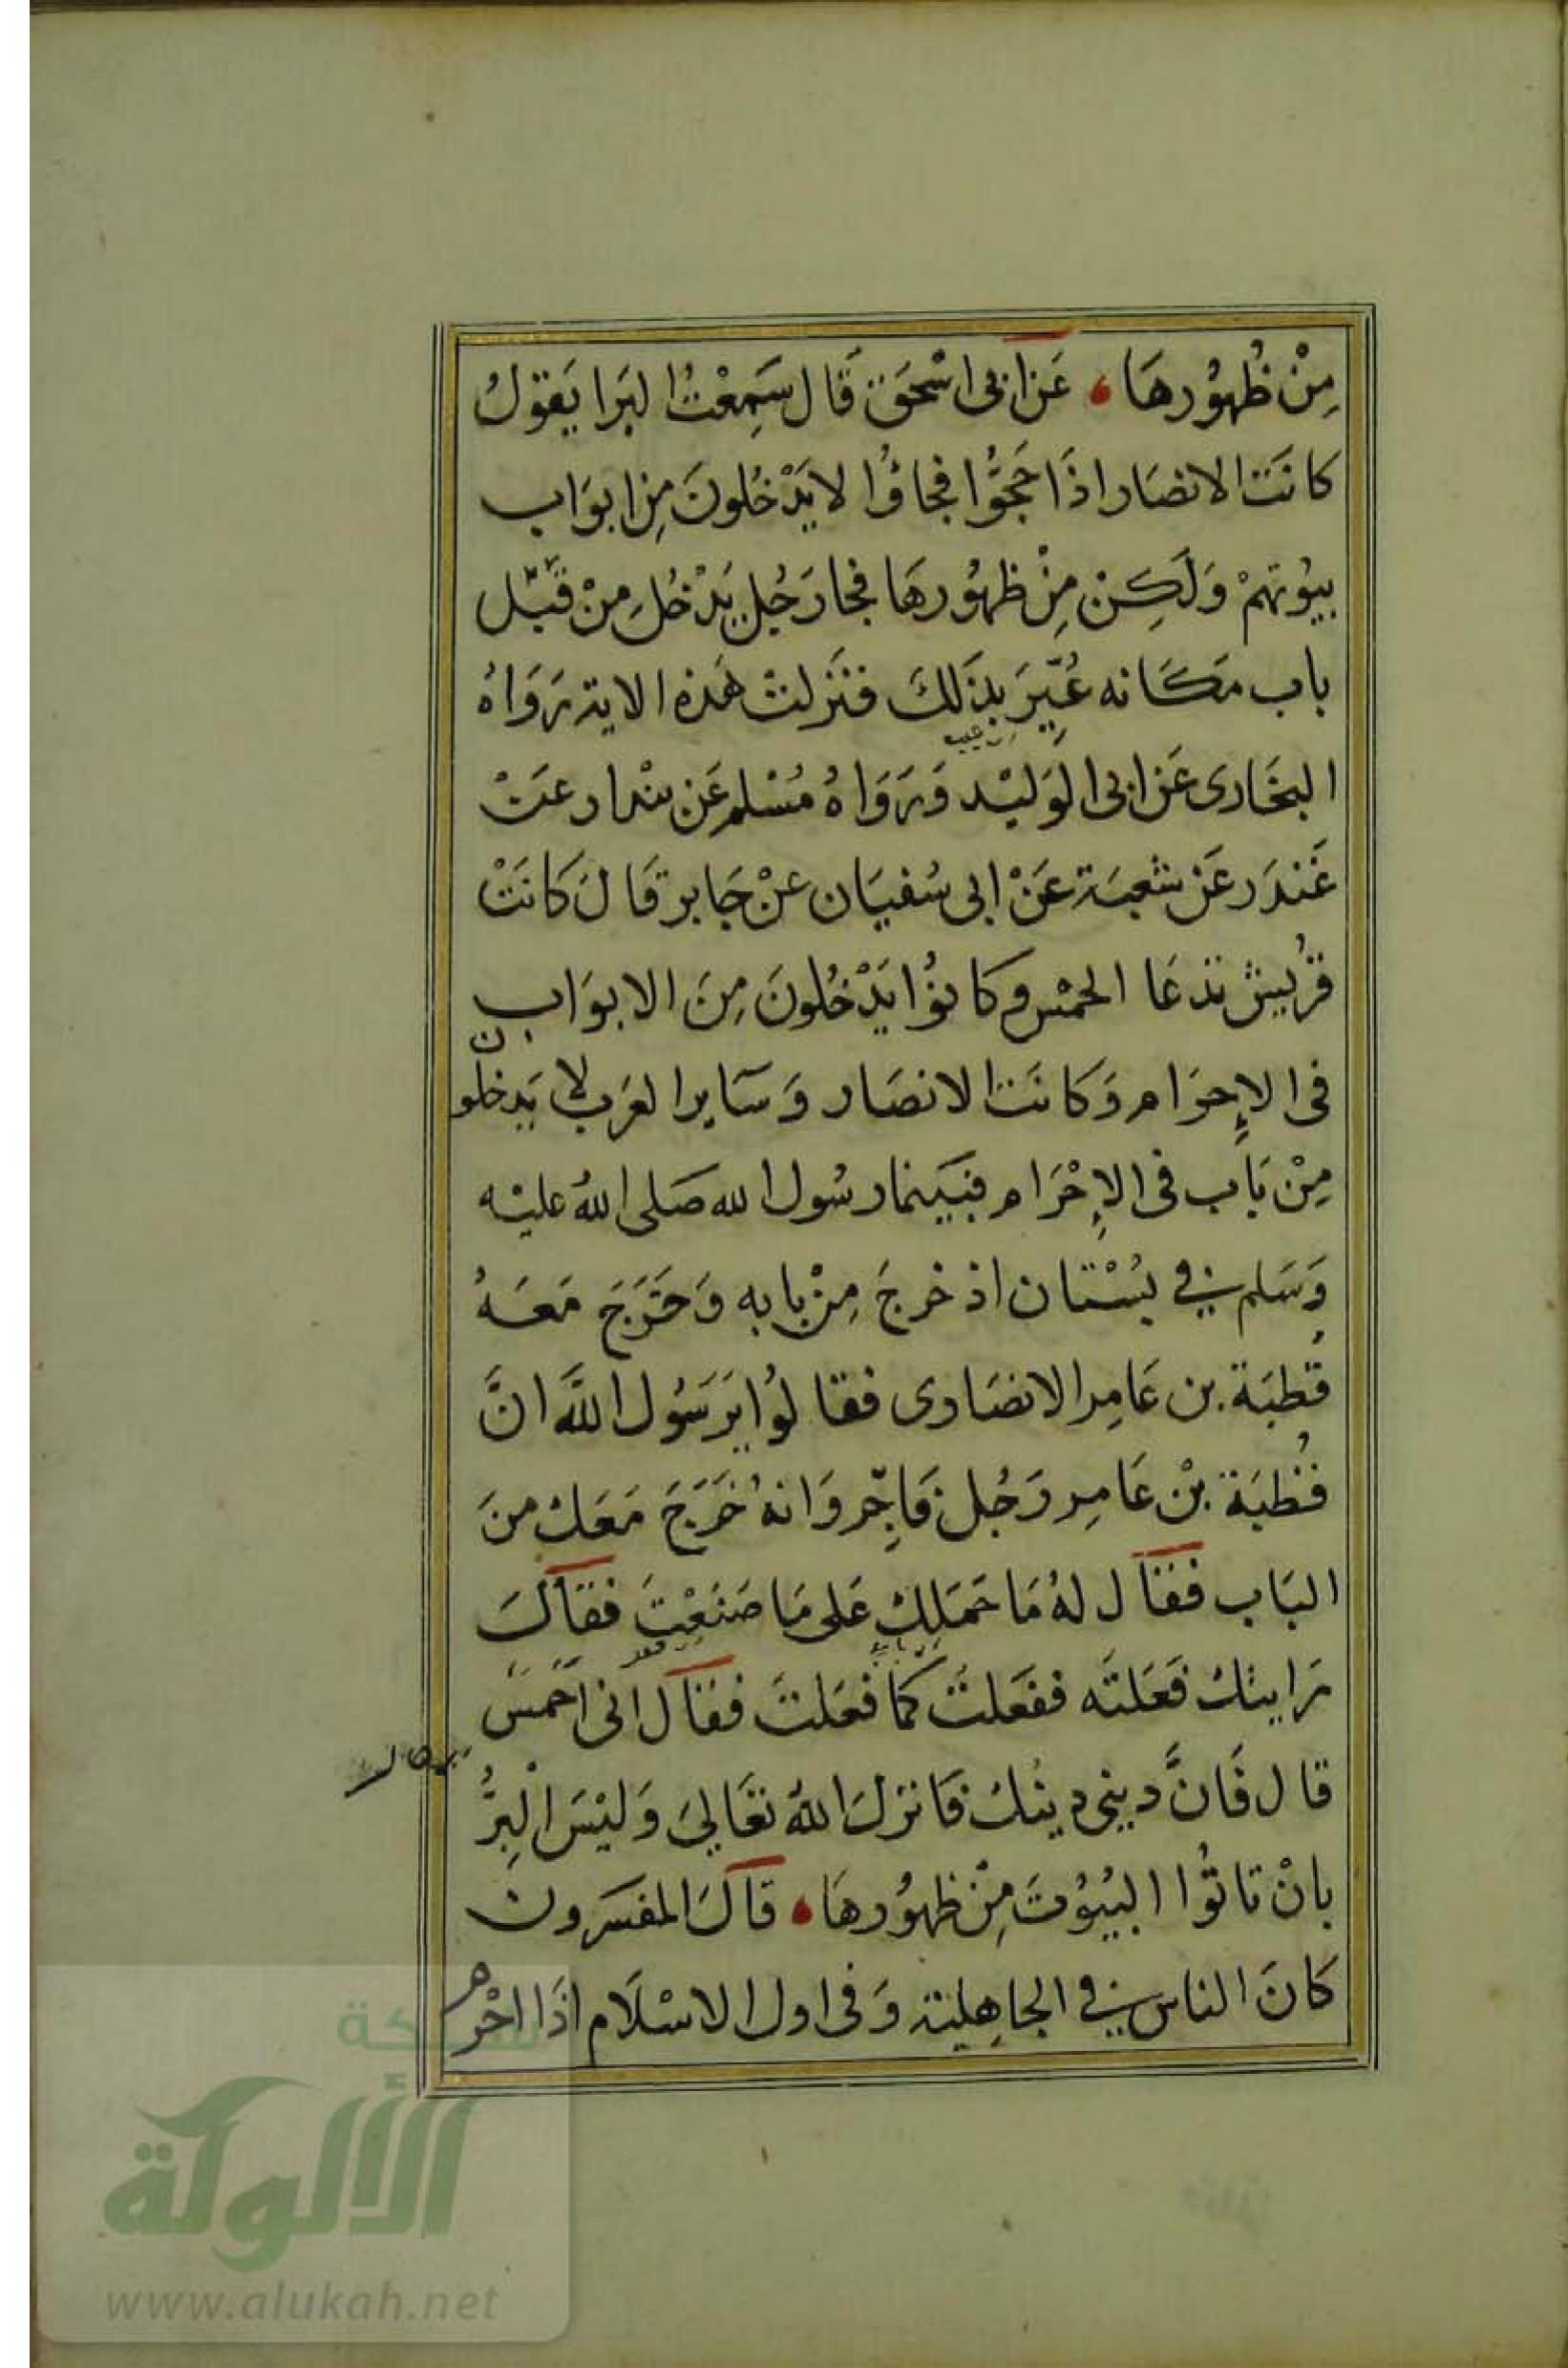 مِنْ ظُهُورهَا عَن ابى اسْحَق قَال سَمِعْتُ البَرا يَقوُلُ
كانَت الانصَار اذَا حَجّوُا فجاؤُا لا يَدْخُلونَ مِن ابوَاب
بيُوتهمْ وَلَكِنْ مِنْ ظهُورهَا فجا رَجُل يَدْخُل مِنْ قبَل
باب مَكَانه عُيِّرَ بذَلكَ فنَزلتْ هَذه الاية رَوَاهُ
البخَارى عَن ابى الوَليْد وَرَوَاهُ مُسْلم عَن بندار عَنْ
غَندَر عَن شعبَة عَنْ ابى سُفيَان عنْ جَابر قَالَ كانَتْ
قرُيش تدعَا الحمْس وكانوُا يَدْخُلونَ مِنَ الابوَاب
فى الإحرَام وَكانَت الانصَار وَسَاير العَرَب لا يَدخلون
مِنْ بَاب فى الإحْرَام فبَينما رسُول الله صَلى اللهُ عليْه
وَسَلم فى بُسْتان اذ خرجَ مِنْ بابه وَخَرَجَ مَعَهُ
قُطبَة بن عَامِر الانصَارى فقالوُا يَرَسُول اللهَ انَّ
قُطبَة بْن عَامِر رَجُل فَاجِر وَانهُ خَرَجَ مَعَكَ منَ
البَاب فقَال لهُ مَا حَمَلكَ عَلى مَا صَنَعْتَ فقالَ
رَايتكَ فَعَلتَه ففَعَلتُ كما فعَلتَ فقَال انى احَمَس
قال فَانَّ دينى دينكَ فَانزلَ اللهُ تعَالىَ وَليْسَ الْبِرُّ
بانْ تاتوُا البُيُوتَ مِنْ ظهُورهَا قالَ المفسرون
كانَ الناس فى الجاهِلية وَفى اول الاسْلَام اذَا احْرم
شبكة
الألوكة
www.alukah.net